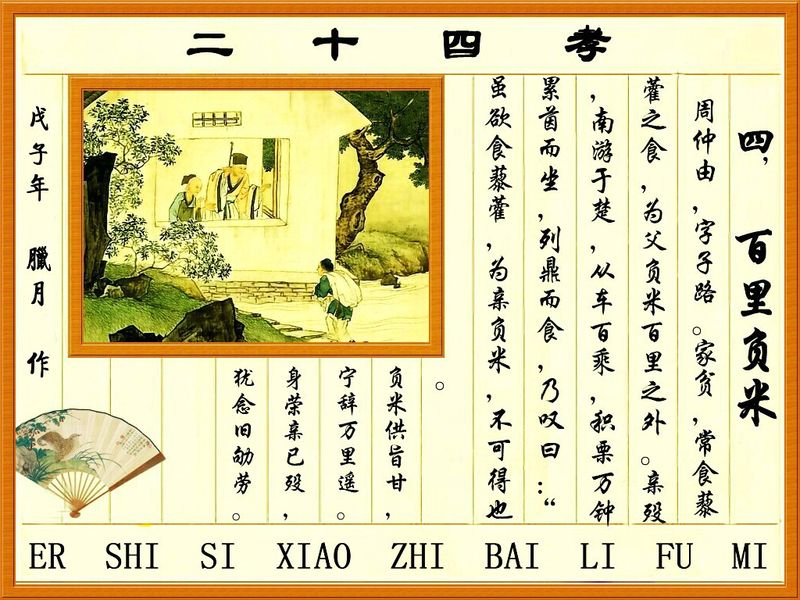 二十四孝
四,百里负米
周仲由,字子路。家贫,常食藜
藿之食,为父负米百里之外。亲殁
,南游于楚,从车百乘,积粟万钟
累茵而坐,列鼎而食,乃叹曰:“
虽欲食藜藿,为亲负米,不可得也
。
负米供旨甘,
宁辞万里遥。
身荣亲已殁,
犹念旧劬劳。
戊子年 臘月 作
ER SHI SI XIAO ZHI BAI LI FU MI